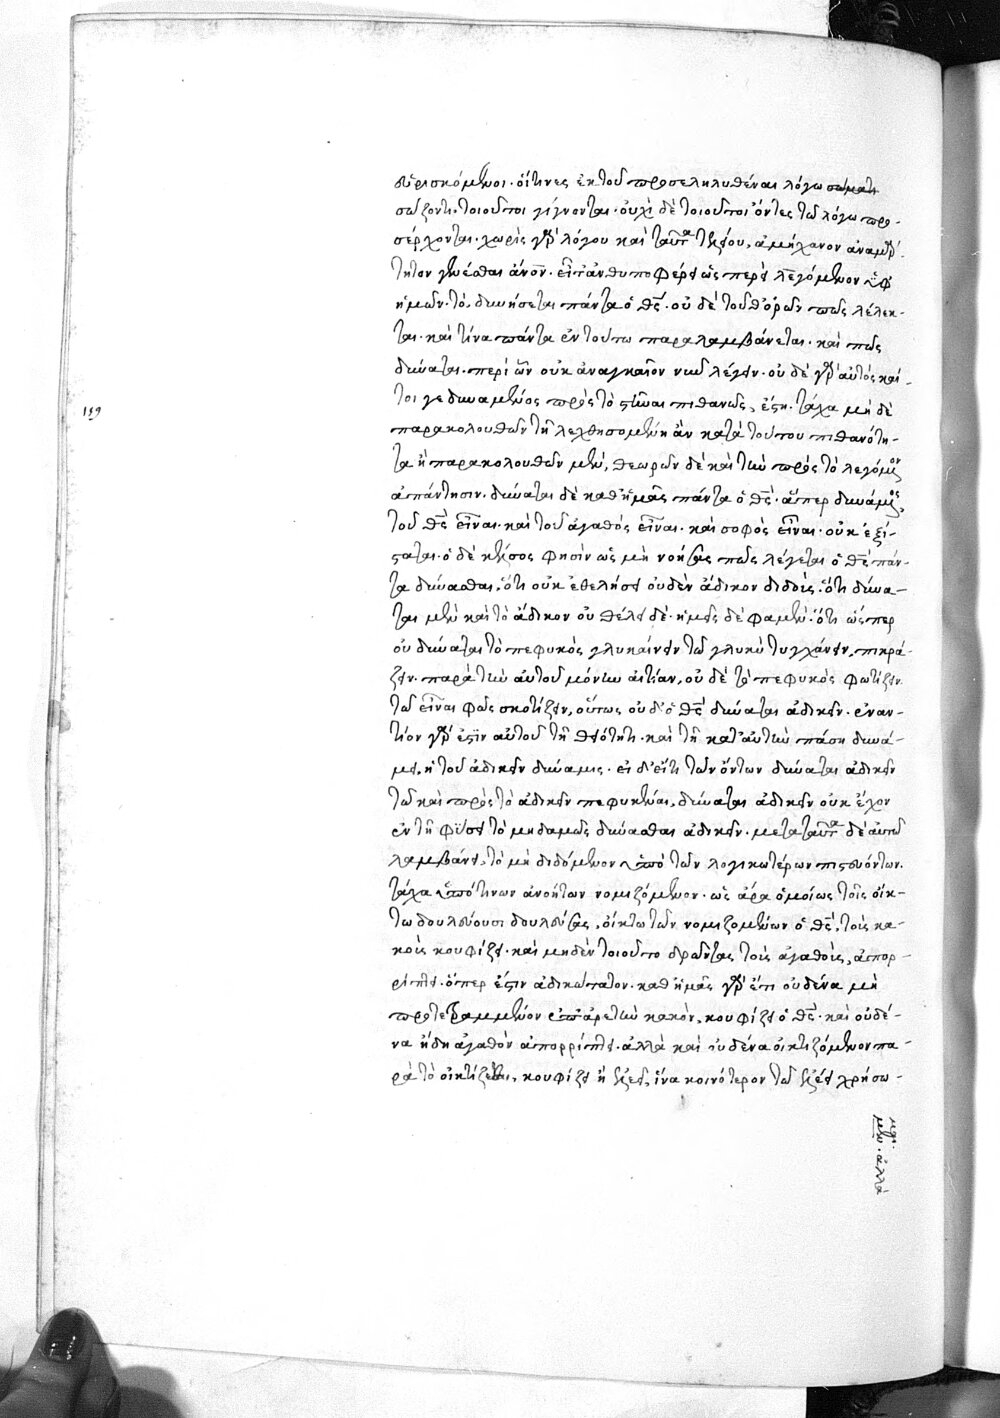 εὑρισκόμενοι· οἵτινες ἐκ τοῦ προσεληλυθέναι λόγω σώματι
σώζοντι· τοιοῦτοι γίγνονται· οὐχὶ δὲ τοιοῦτοι ὄντες τῶ λόγω προ-
σέρχονται· χωρὶς γὰρ λόγου καὶ ταῦτα τελείου, ἀμήχανον ἀναμάρ-
τητον γενέσθαι ἄνον· εἶτ' ἀνθυποφέρει ὡς περὶ λεγόμενον ὑφ'
ἡμῶν· τὸ, δυνήσεται πάντα ὁ θς· οὐδὲ τοῦθ' ὁρῶν πῶς λέλεκ-
ται· καὶ τίνα πάντα ἐν τούτω παραλαμβάνεται· καὶ πῶς
δύναται· περὶ ὧν οὐκ ἀναγκαῖον νῦν λέγειν· οὐδὲ γὰρ αὐτὸς καί-
τοι γε δυναμένος πρὸς τὸ στῆναι πιθανῶς, ἔστη· τάχα μηδὲ
159
παρακολουθῶν τῆ λεχθησομένη ἂν κατὰ τούτου πιθανότη-
τα ἢ παρακολουθῶν μὲν, θεωρῶν δὲ καὶ τὴν πρὸς τὸ λεγόμενον
ἀπάντησιν· δύναται δὲ καθ' ἡμᾶς πάντα ὁ θς· ἅπερ δυνάμενος,
τοῦ θς εἶναι· καὶ τοῦ ἀγαθὸς εἶναι· καὶ σοφὸς εἶναι· οὐκ ἐξί-
σταται· ὁ δὲ κέλσος φησὶν ὡς μὴ νοήσας πῶς λέγεται ὁ θς πάν-
τα δύνασθαι, ὅτι οὐκ ἐθελήσει οὐδὲν ἄδικον διδοὺς· ὅτι δύνα-
ται μὲν καὶ τὸ ἄδικον οὐ θέλει δέ· ἡμεῖς δὲ φαμὲν· ὅτι ὥσπερ
οὐ δύναται τὸ πεφυκὸς γλυκαίνειν τῶ γλυκὺ τυγχάνειν, πικρά-
ζειν· παρὰ τὴν αὐτοῦ μόνην αἰτίαν, οὐδὲ τὸ πεφυκὸς φωτίζειν
τῶ εἶναι φῶς σκοτίζειν, οὕτως οὐδ' ὁ θς δύναται ἀδικεῖν· ἐναν-
τίον γάρ ἐστιν αὐτοῦ τῆ θειότητι· καὶ τῆ κατ' αὐτὴν πάση δυνά-
μει, ἡ τοῦ ἀδικεῖν δύναμις· εἰ δ' εἴτι τῶν ὄντων δύναται ἀδικεῖν
τῶ καὶ πρὸς τὸ ἀδικεῖν πεφυκέναι, δύναται ἀδικεῖν οὐκ ἔχον
ἐν τῆ φύσει τὸ μηδαμῶς δύνασθαι ἀδικεῖν· μετὰ ταῦτα δὲ αὐτῶ
λαμβάνει, τὸ μὴ διδόμενον ὑπὸ τῶν λογικωτέρων πιστευόντων·
τάχα ὑπό τινων ἀνοήτων νομιζόμενον· ὡς ἄρα ὁμοίως τοῖς οἴκ-
τω δουλεύουσι δουλεύσας, οἴκτω τῶν νομιζομένων ὁ θς, τοὺς κα-
κοὺς κουφίζει· καὶ μηδὲν τοιοῦτο δρῶντας τοὺς ἀγαθοὺς, ἀπορ-
ρίπτει· ὅπερ ἐστὶν ἀδικώτατον· καθ' ἡμᾶς γὰρ ἔτι οὐδένα μὴ
προτετραμμένον ἐπ' ἀρετὴν κακὸν, κουφίζει ὁ θς· καὶ οὐδέ-
να ἤδη ἀγαθὸν ἀπορρίπτει· ἀλλὰ καὶ οὐδένα οἰκτιζόμενον πα-
ρὰ τὸ οἰκτίζεσθαι, κουφίζει ἢ ἐλεεῖ, ἵνα κοινότερον τῶ ἐλέει χρήσω-
μαι·
μεν· ἀλλὰ